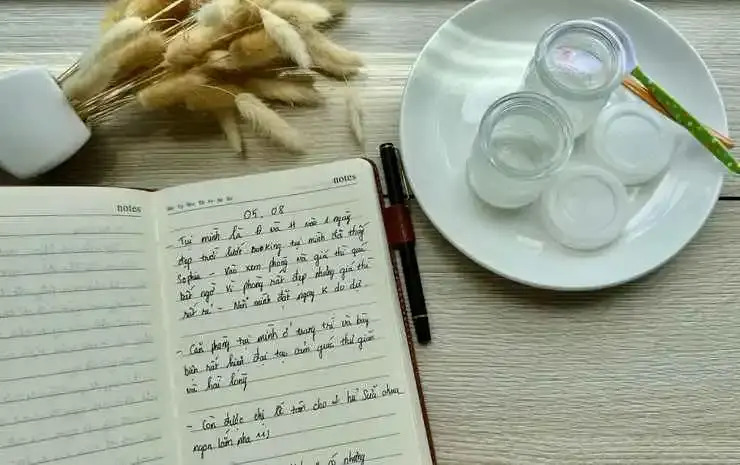 notes
notes
05. 08
Tụi mình là Đ và H vào 1 ngày
đẹp trời lướt booking tụi mình đã thấy
Sophia - Vào xem phòng và giá thì quá
bất ngờ vì phòng rất đẹp nhưng giá thì
rất rẻ - Nên mình đặt ngay k do dự
- Căn phòng tụi mình ở trang trí và bày
biện rất hiện đại tạo cảm giác thư giãn
và hài lòng
- Còn được chị lễ tân cho hũ sữa chua
ngon lắm nha
những